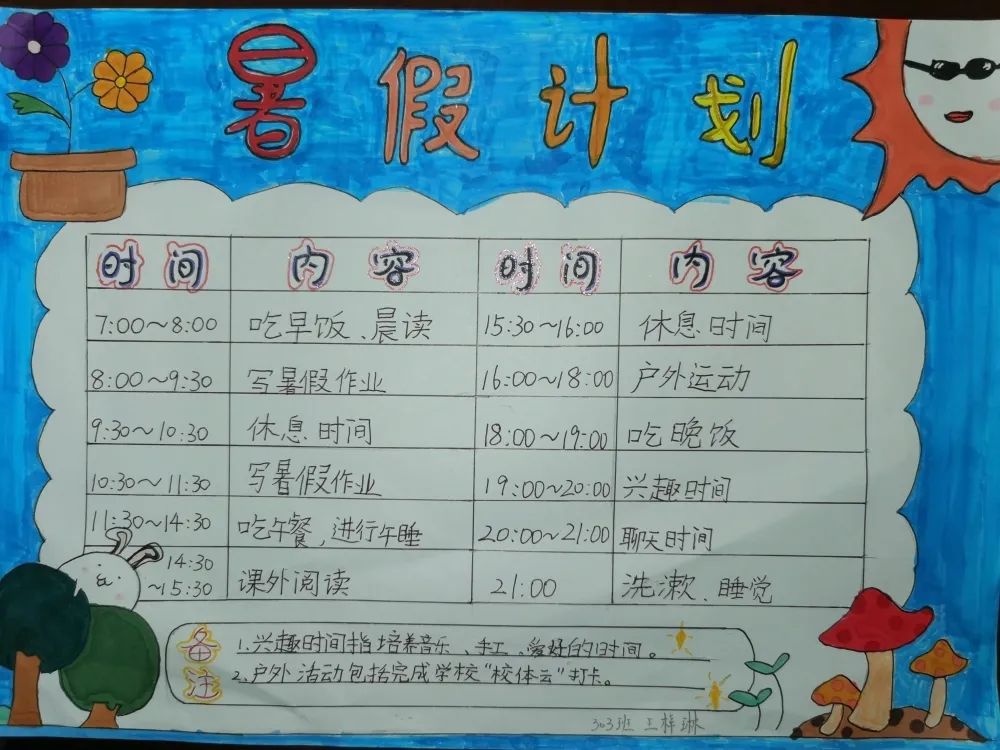 暑假计划
时间 内容 时间 内容
7:00~8:00 吃早饭、晨读 15:30~16:00 休息时间
8:00~9:30 写暑假作业 16:00~18:00 户外运动
9:30~10:30 休息时间 18:00~19:00 吃晚饭
10:30~11:30 写暑假作业 19:00~20:00 兴趣时间
11:30~14:30 吃午餐,进行午睡 20:00~21:00 聊天时间
14:30~15:30 课外阅读 21:00 洗漱、睡觉
备注
1.兴趣时间指培养音乐、手工、爱好的时间。
2.户外活动包括完成学校“校体云”打卡。
303班 王梓琳